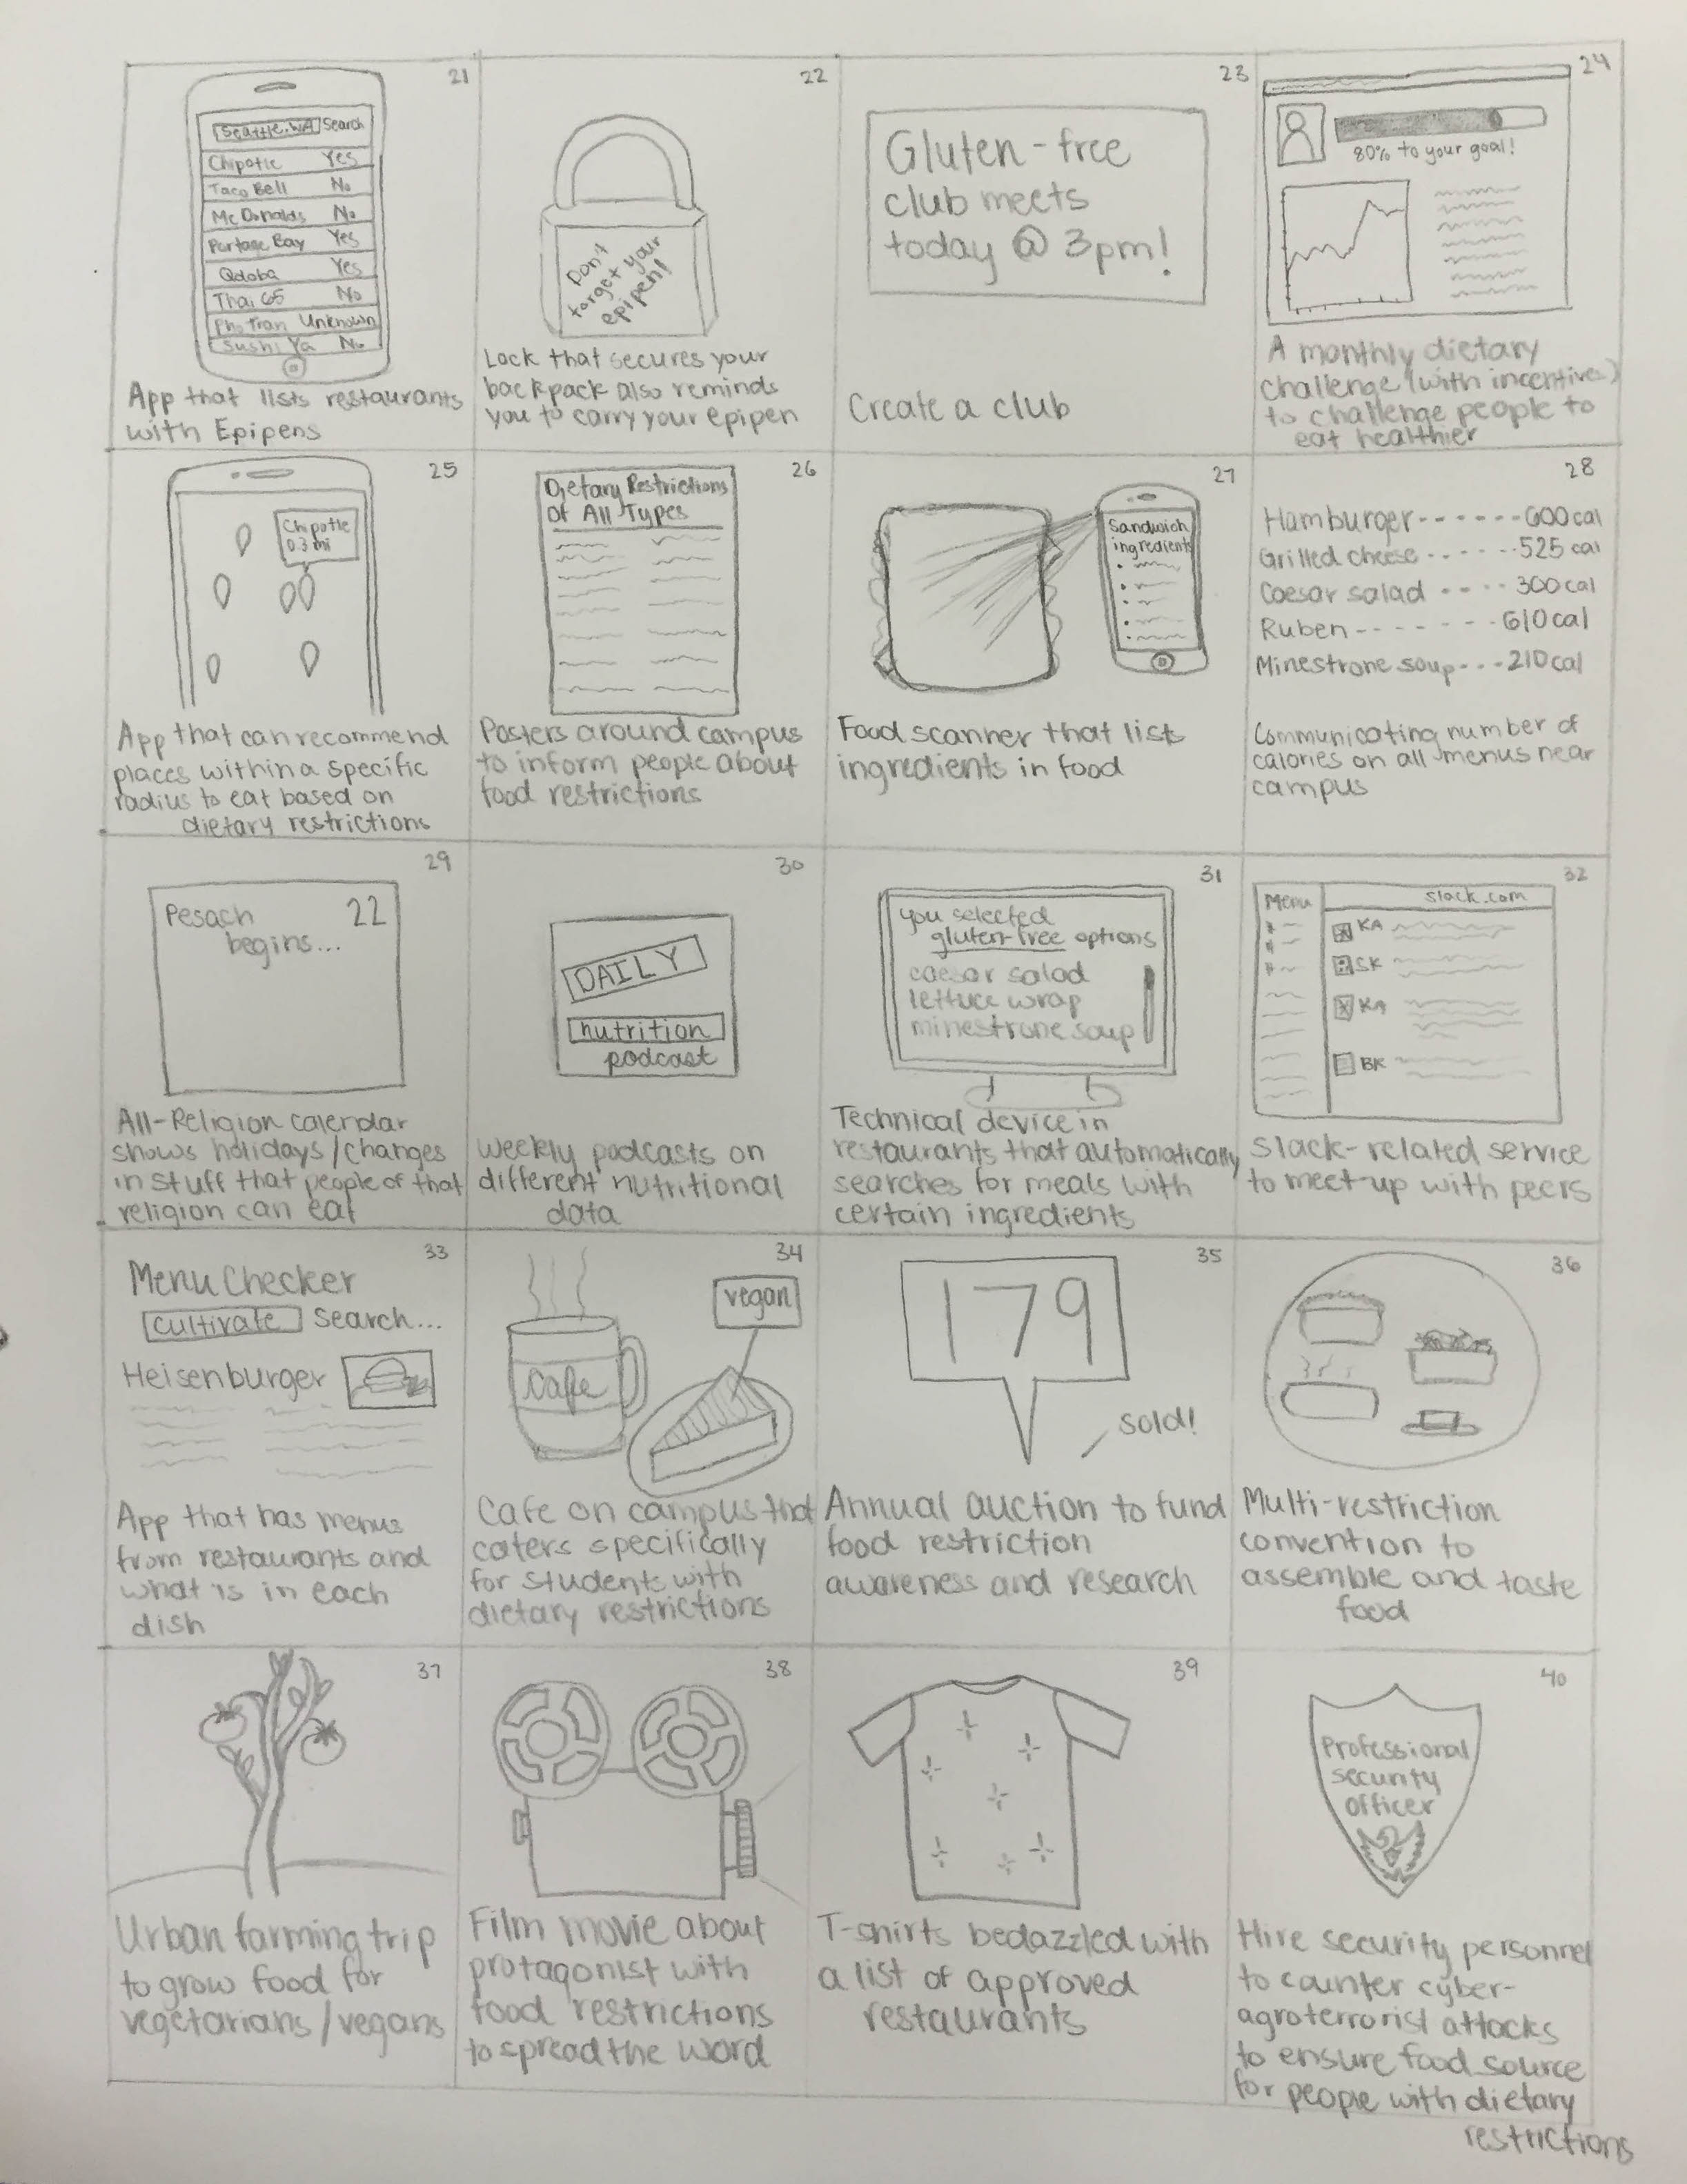 21
Seattle, WA Search
Chipotle Yes
Taco Bell No
McDonalds No
Portage Bay Yes
Qdoba Yes
Thai 65 No
Pho Tran Unknown
Sushi Ya No
App that lists restaurants
with Epipens
22
Don't
forget your
epipen!
Lock that secures your
backpack also reminds
you to carry your epipen
23
Gluten-free
club meets
today @ 3pm!
Create a club
24
80% to your goal!
A monthly dietary
challenge (with incentives)
to challenge people to
eat healthier
25
Chipotle
0.3 mi
App that can recommend
places within a specific
radius to eat based on
dietary restrictions
26
Dietary Restrictions
Of All Types
Posters around campus
to inform people about
food restrictions
27
Sandwich
ingredients
Food scanner that lists
ingredients in food
28
Hamburger------600cal
Grilled cheese------525 cal
Caesar salad ---- 300cal
Ruben-------610cal
Minestrone soup---210cal
Communicating number of
calories on all menus near
campus
29
Pesach 22
begins...
All-Religion calendar
shows holidays/changes
in stuff that people of that
religion can eat
30
DAILY
nutrition
podcast
Weekly podcasts on
different nutritional
data
31
you selected
gluten-free options
caesar salad
lettuce wrap
minestrone soup
Technical device in
restaurants that automatically
searches for meals with
certain ingredients
32
Menu slack.com
KA
SK
KA
BK
Slack-related service
to meet-up with peers
33
Menu Checker
Cultivate Search...
Heisenburger
App that has menus
from restaurants and
what is in each
dish
34
vegan
Cafe
Cafe on campus that
caters specifically
for students with
dietary restrictions
35
179
sold!
Annual auction to fund
food restriction
awareness and research
36
Multi-restriction
convention to
assemble and taste
food
37
Urban farming trip
to grow food for
vegetarians/vegans
38
Film movie about
protagonist with
food restrictions
to spread the word
39
T-shirts bedazzled with
a list of approved
restaurants
40
Professional
security
Officer
Hire security personnel
to counter cyber-
agroterrorist attacks
to ensure food source
for people with dietary
restrictions